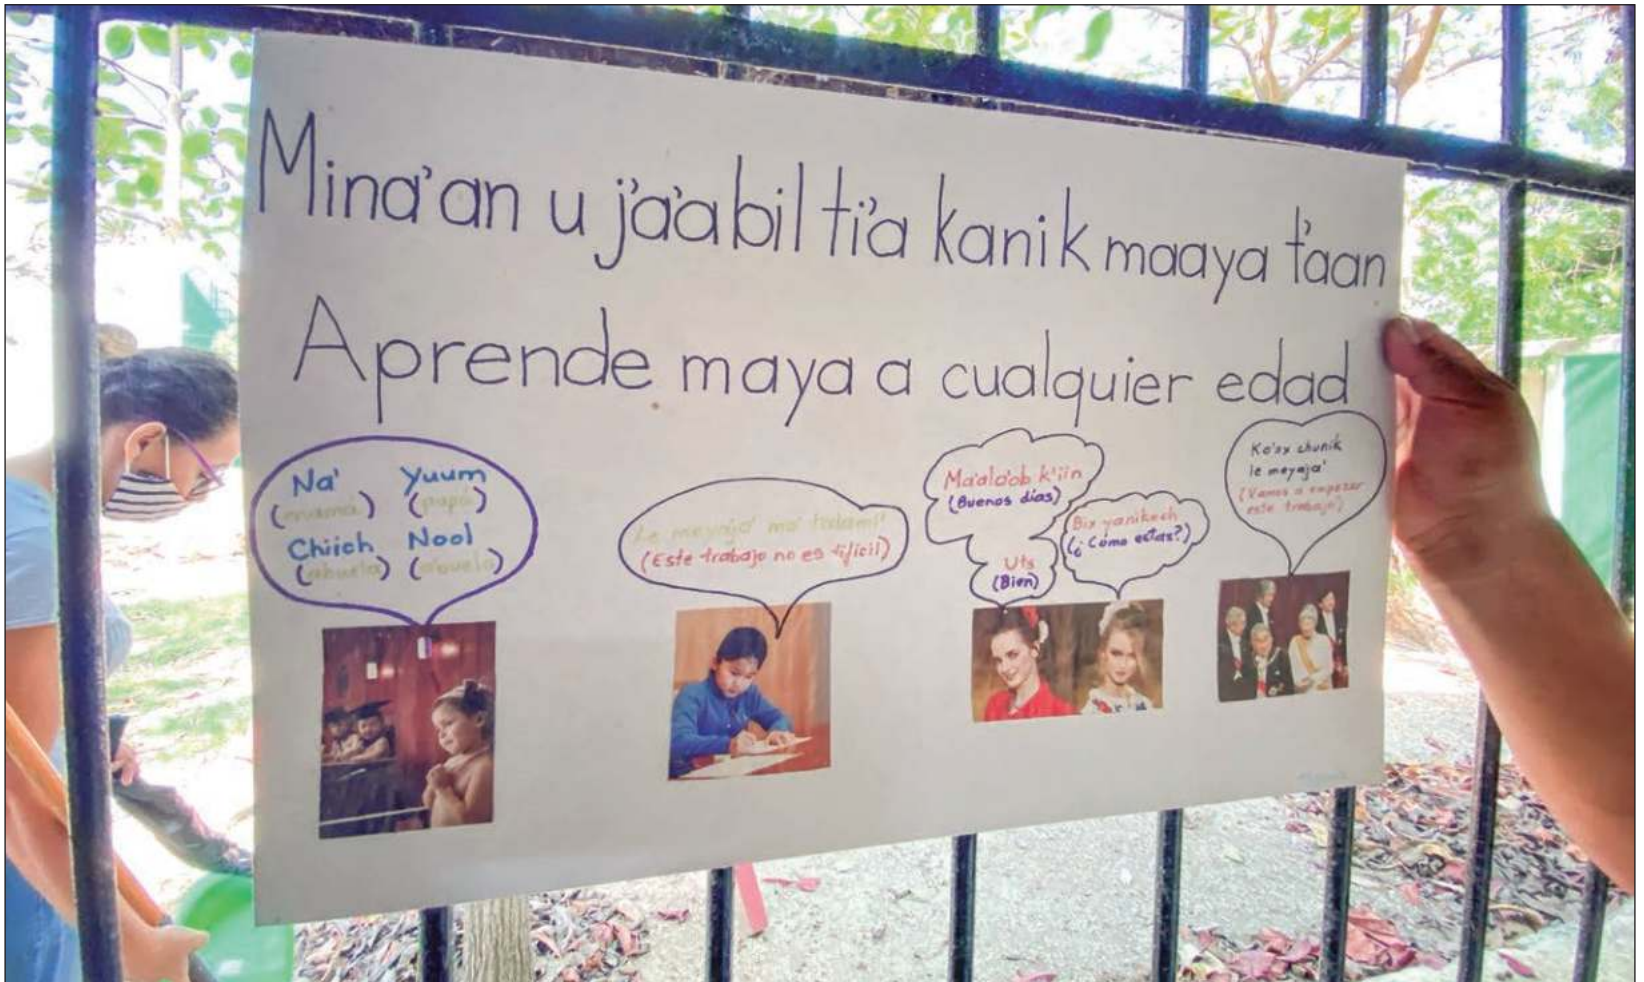 Mina'an u ja'abil ti'a kanik maaya t'aan
Aprende maya a cualquier edad
Na' Yuum
(mamá) (papá)
Chiich Nool
(abuela) (abuelo)
Le meyaja' ma'
(Este trabajo no es difícil)
Ma'ala'ob k'iin
(Buenos días)
Bix yanikech
(¿Cómo estas?)
Uts
(Bien)
Ko'ox chunik
le meyaja'
(Vamos a empezar
este trabajo)